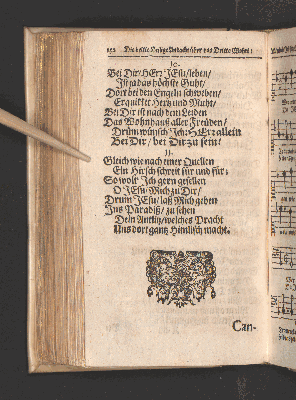 152 Die dritte Heilige Andacht über das Dritte Wohrt:
10.
Bei Dir/ HErr JEsu/ leben/
Ist ja das höchste Guht/
Dort bei den Engeln schweben/
Erquikket Hertz und Muht/
Bei Dir ist nach dem Leiden
Das Wohnhaus aller Freüden/
Drüm wünsch' Ich/ HErr allein
Bei Dir/ bei Dir zu sein/
11.
Gleich wie nach einer Quellen
Ein Hirsch schreit für und für:
So wolt' Ich gern gesellen
O JEsu/ Mich zu Dir/
Drum JEsu/ laß Mich gehen
Ins Paradiß/ zu sehen
Dein Antlitz/ welches Pracht
Uns dort gantz Himlisch macht.
Can-